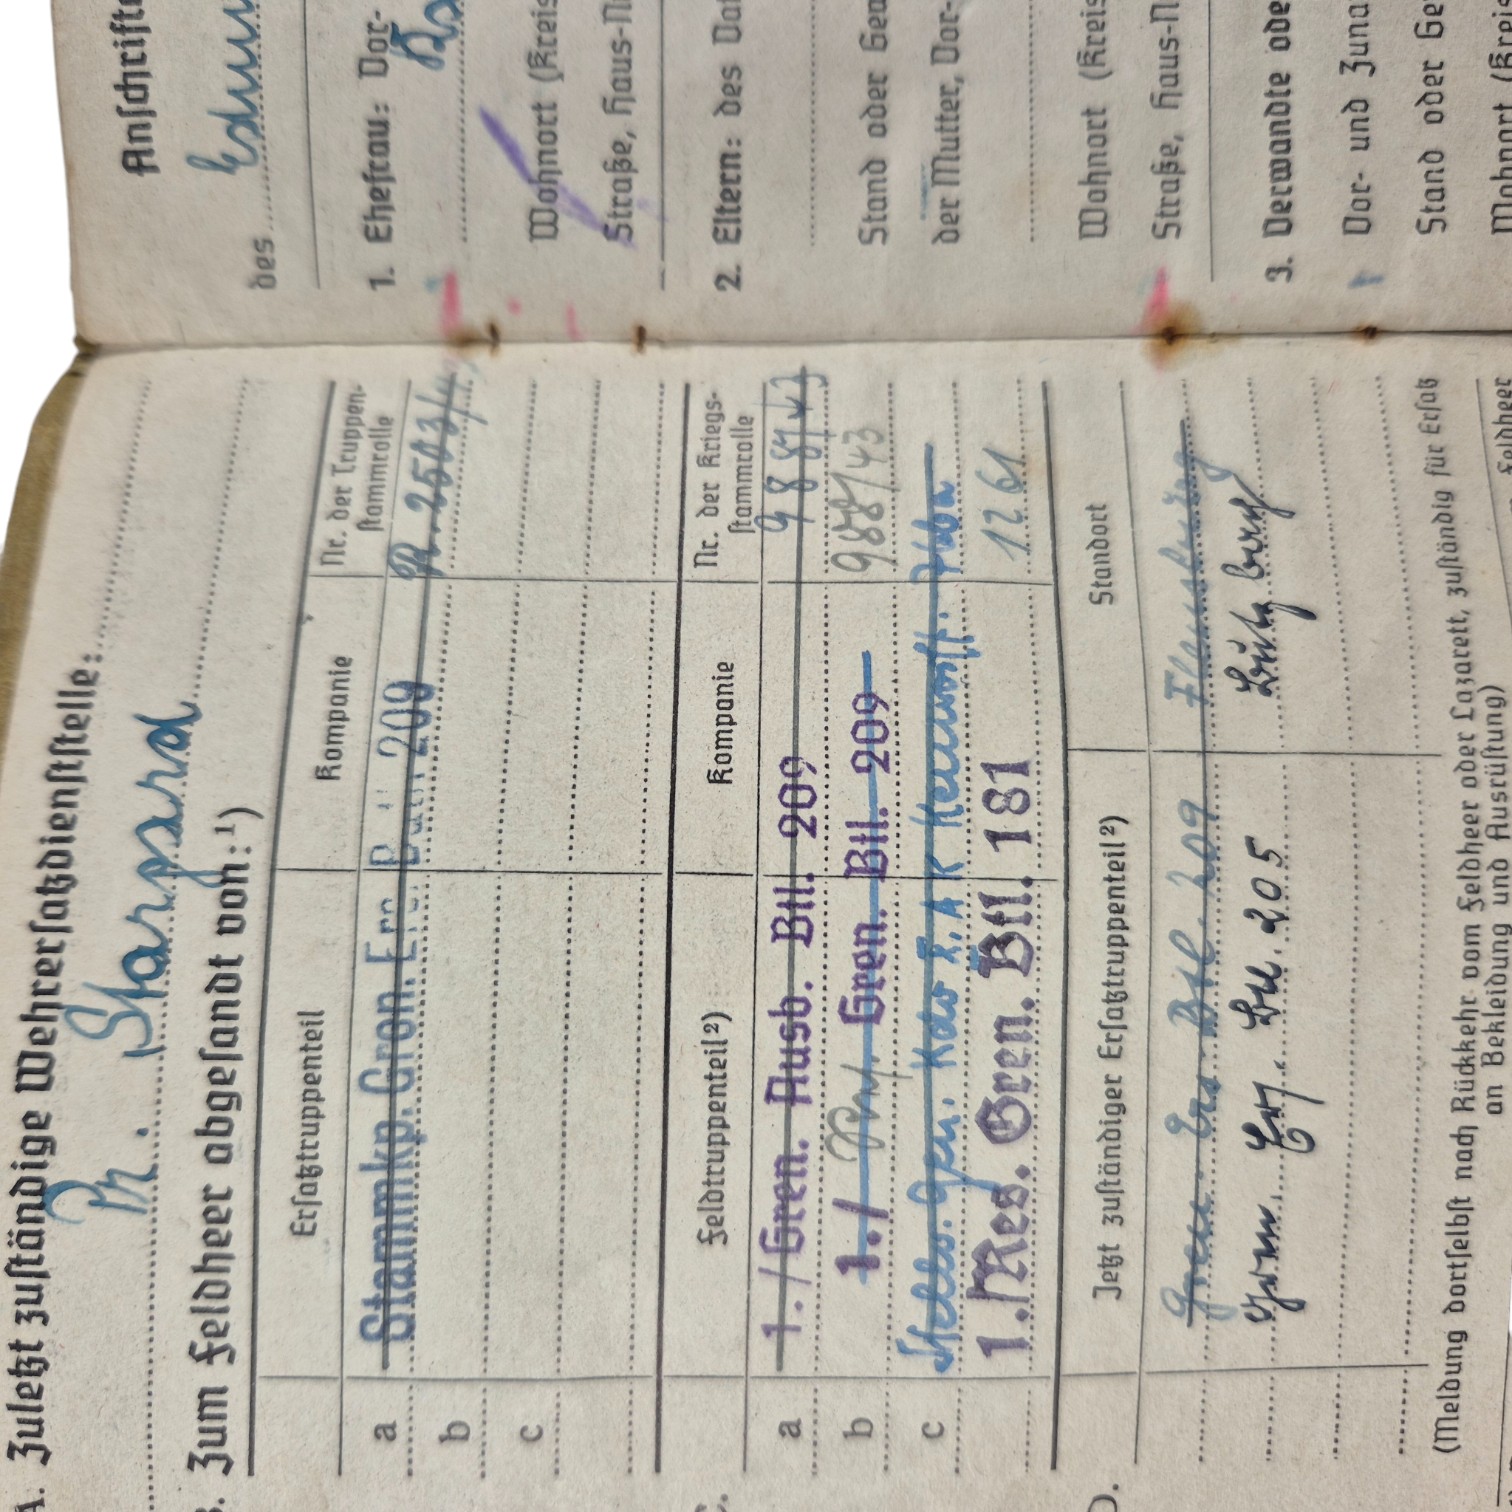 A. Zuletzt zuständige Wehrersatzdienststelle:
Pr. Stargard
B. Zum Feldheer abgesandt von:¹)
Ersatztruppenteil Kompanie Nr. der Truppen-
stammrolle
a Stammkp. Gren. Ers. Batl. 209
b
c
C.
Feldtruppenteil²) Kompanie Nr. der Kriegs-
stammrolle
a 1./Gren. Ausb. Btl. 209 988/43
b 1./ Gren. Btl. 209 988/43
c Stellv. Gen. Kdo
1./Res. Gren. Btl. 181 1261
D.
Jetzt zuständiger Ersatztruppenteil²) Standort
Gren. Ers. Btl. 209 Flensburg
205
(Meldung dortselbst nach Rückkehr vom Feldheer oder Lazarett, zuständig für Ersatz
an Bekleidung und Ausrüstung)
Feldheer
Anschrifte
des
1. Ehefrau: Vor-
Wohnort (Kreis
Straße, Haus-N
2. Eltern: des Va
Stand oder Gew
der Mutter, Vor-
Wohnort (Kreis
Straße, Haus-N
3. Verwandte ode
Vor- und Zuna
Stand oder Ge
Wohnort (Kreis